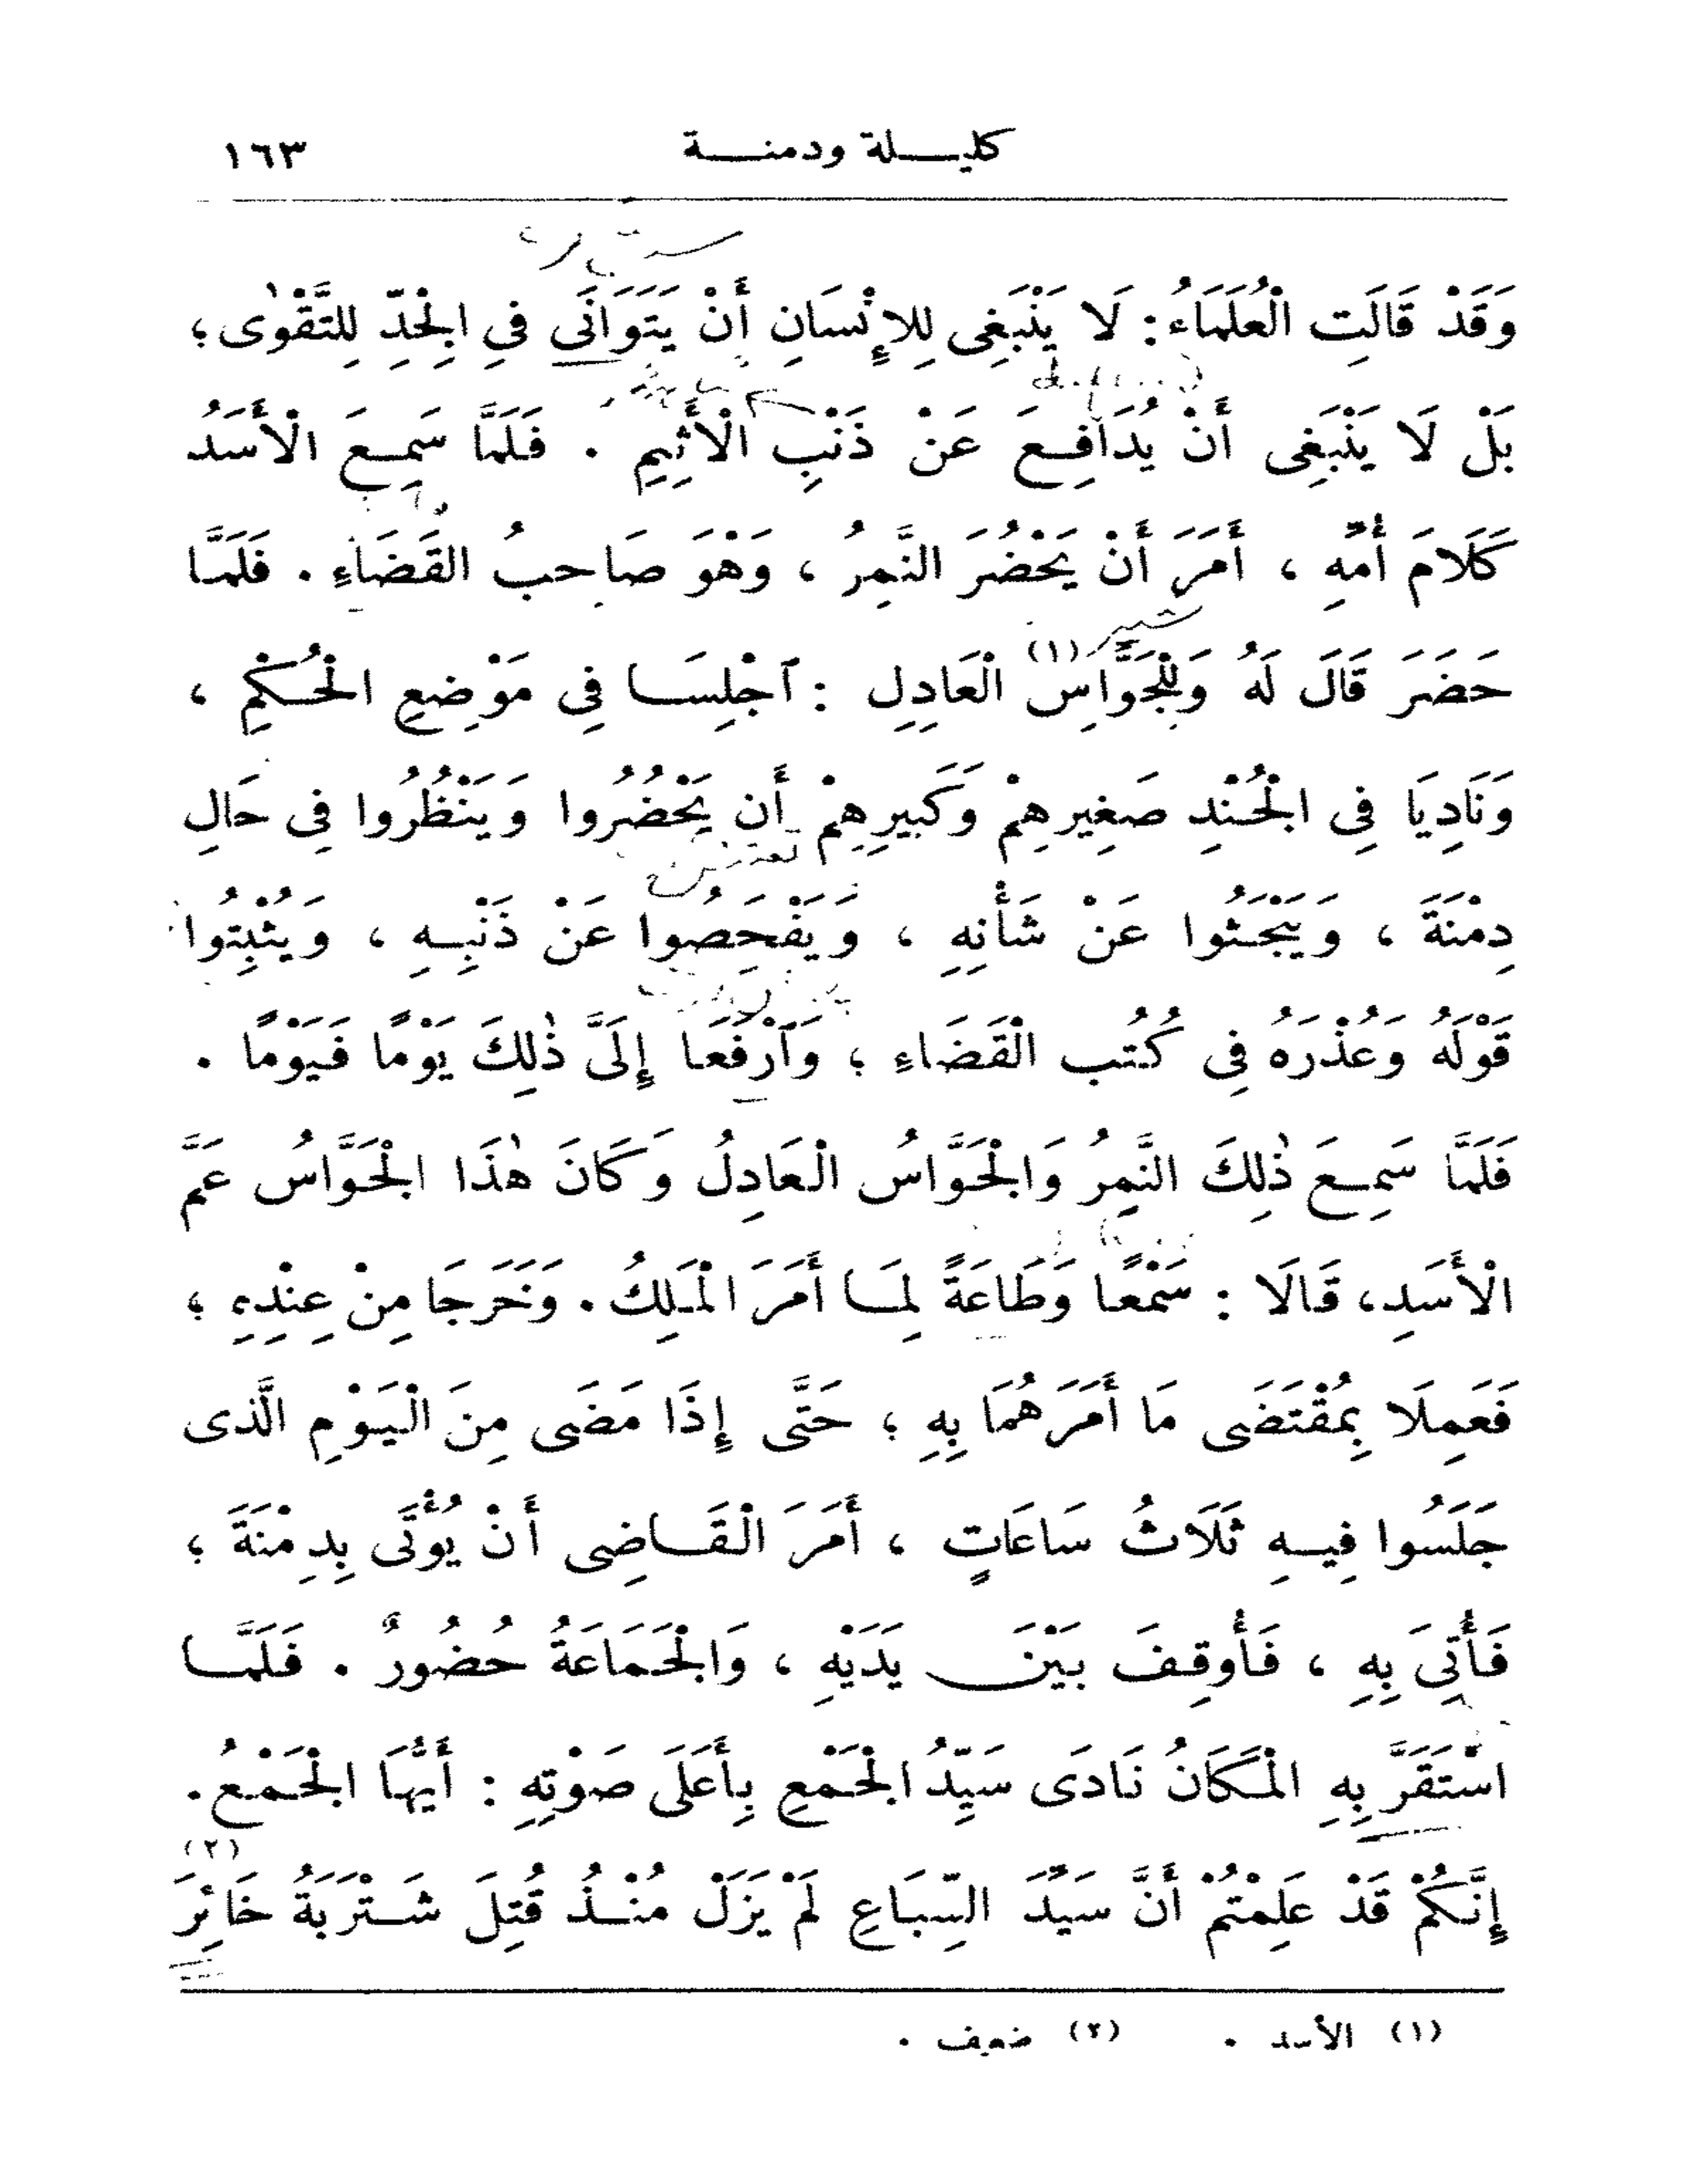 كليلة ودمنة ١٦٣
وَقَدْ قَالَتِ الْعُلَمَاءُ: لَا يَنْبَغِى لِلإِنْسَانِ أَنْ يَتَوَانَى فِي الْجِدِّ لِلتَّقْوٰى ؛
بَلْ لَا يَنْبَغِى أَنْ يُدَافِعَ عَنْ ذَنْبِ الْأَثِيمِ . فَلَمَّا سَمِعَ الْأَسَدُ
كَلَامَ أُمِّهِ ، أَمَرَ أَنْ يَحْضُرَ النَّمِرُ ، وَهْوَ صَاحِبُ القَضَاءِ . فَلَمَّا
حَضَرَ قَالَ لَهُ وَلِلْجَوَّاسِ (١) الْعَادِلِ : اَجْلِسَا فِى مَوْضِعِ الْحُكْمِ ،
وَنَادِيَا فِى الْجُنْدِ صَغِيرِهِمْ وَكَبِيرِهِمْ أَن يَحْضُرُوا وَيَنْظُرُوا فِى حَالِ
دِمْنَةَ ، وَيَبْحَثُوا عَنْ شَأْنِهِ ، وَيَفْحَصُوا عَنْ ذَنْبِهِ ، وَيُثْبِتُوا
قَوْلَهُ وَعُذْرَهُ فِى كُتُبِ الْقَضَاءِ ؛ وَاَرْفَعَا إِلَىَّ ذٰلِكَ يَوْمًا فَيَوْمًا .
فَلَمَّا سَمِعَ ذٰلِكَ النَّمِرُ وَالْجَوَّاسُ الْعَادِلُ وَكَانَ هٰذَا الْجَوَّاسُ عَمَّ
الْأَسَدِ، قَالَا : سَمْعًا وَطَاعَةً لِمَا أَمَرَ الْمَلِكُ . وَخَرَجَا مِنْ عِنْدِهِ ؛
فَعَمِلَا بِمُقْتَضَى مَا أَمَرَهُمَا بِهِ ؛ حَتَّى إِذَا مَضَى مِنَ الْيَوْمِ الَّذى
جَلَسُوا فِيهِ ثَلَاثُ سَاعَاتٍ ، أَمَرَ الْقَاضِى أَنْ يُؤْتَى بِدِمْنَةَ ؛
فَأُتِىَ بِهِ ، فَأُوقِفَ بَيْنَ يَدَيْهِ ، وَالْجَمَاعَةُ حُضُورٌ . فَلَمَّا
اسْتَقَرَّ بِهِ الْمَكَانُ نَادَى سَيِّدُ الْجَمْعِ بِأَعْلَى صَوْتِهِ : أَيُّهَا الْجَمْعُ.
إِنَّكُمْ قَدْ عَلِمْتُمْ أَنَّ سَيِّدَ السِّبَاعِ لَمْ يَزَلْ مُنْذُ قُتِلَ شَتْرَبَةُ خَائِرَ (٢)
(١) الأسد . (٢) ضعيف .